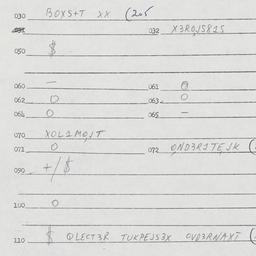 030 BOXS+T XX (205
032 X3ROJS815
050 $
060 — 061 0
062 O 063 O
064 O 065 —
070 XOL2MOJT
071 O 072
090 +/$
100 O
110 $ QLECT3R TUKPEJS3X OVD3RNAXT (